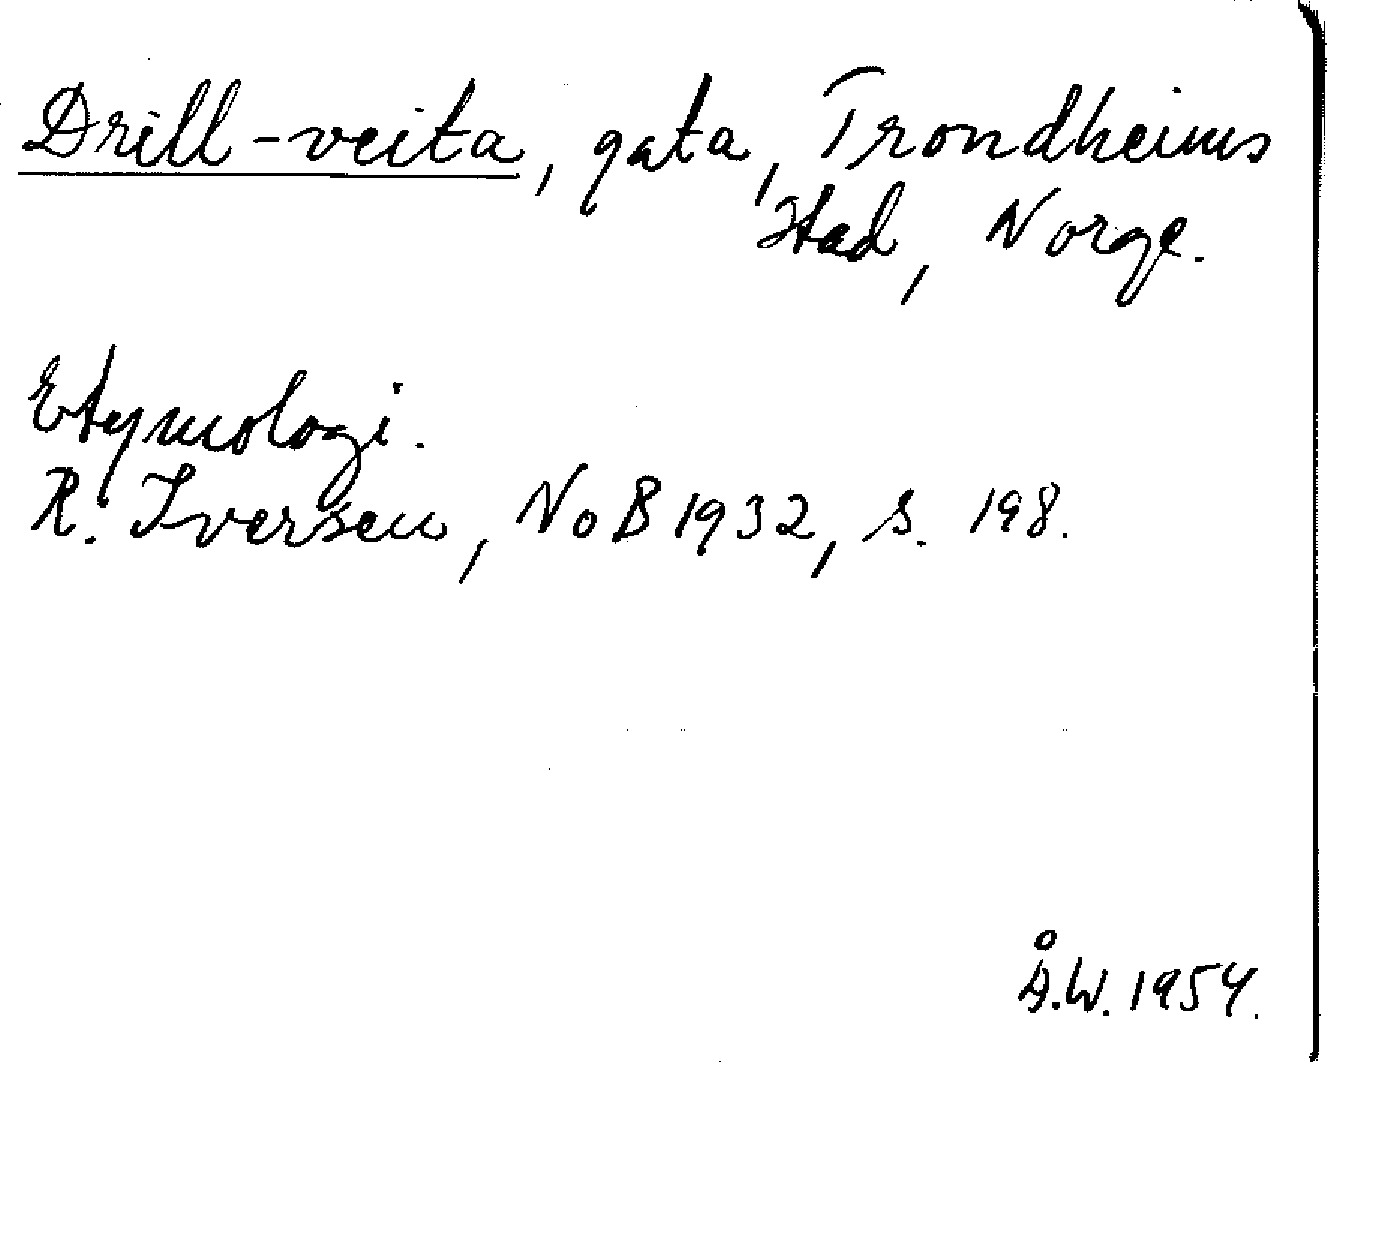 Drill-veita, gata, Trondheims
stad, Norge.
Etymologi.
R. Iversen, NoB 1932, s. 198.
Å.W. 1954.